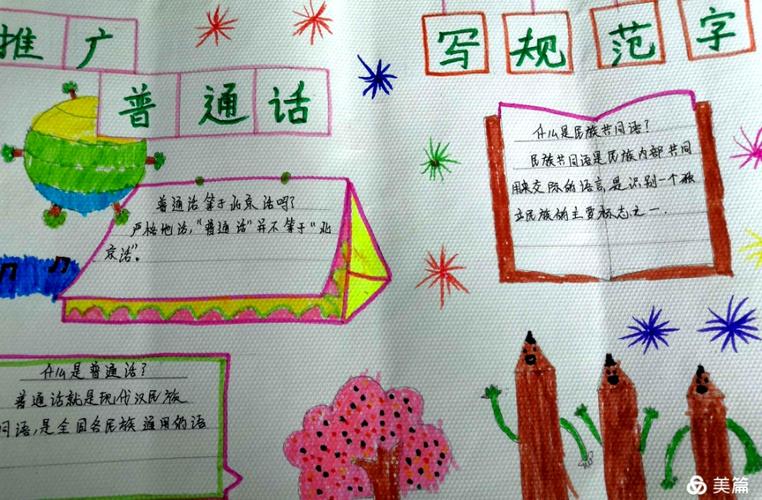 推广
普通话
写规范字
普通话等于北京话吗?
严格地话,“普通话”并不等于“北
京话”。
什么是民族共同语?
民族共同语是民族内部共同
用来交际的语言,是识别一个独
立民族的主要标志之一.
什么是普通话?
普通话就是现代汉民族
同语,是全国各民族通用的语
美篇